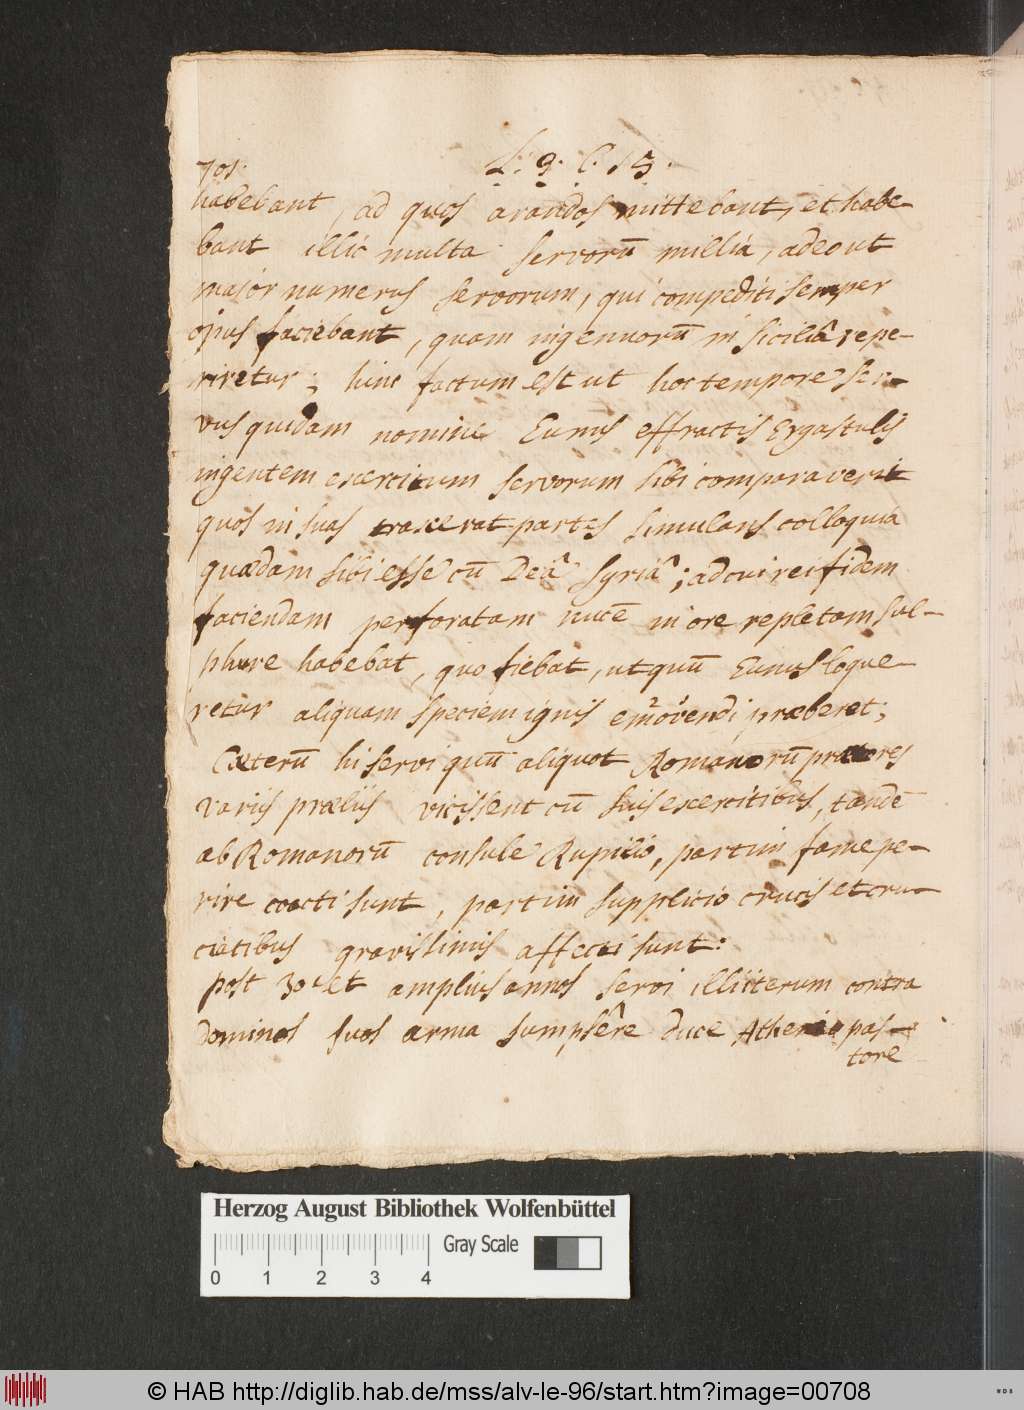 701.
L. 9. C. 15.
habebant, ad quos arandos mittebant, et habe-
bant illic multa servorū millia, adeo ut
major numerus servorum, qui compediti semper
opus faciebant, quam ingenuorū in siciliâ repe-
riretur; hinc factum est ut hoc tempore ser-
vus quidam nomine Eunus effractis Ergastulis
ingentem exercitum servorum sibi comparaverit
quos in suas traxerat partes simulans colloquia
quædam sibi esse cū Deâ Syriâ; ad cui rei fidem
faciendam perforatam nucē in ore repletam sul-
phure habebat, quo fiebat, ut quū Eunus loque-
retur aliquam speciem ignis præberet;
Cæterū hi servi quū aliquot Romanorū prætores
variis præliis vicissent cū suis exercitibus, tandē
ab Romanorū consule Rupilio, partim fame pe-
rire coacti sunt, partim supplicio crucis et cru-
ciatibus gravissimis affecti sunt:
post 30 et amplius annos servi illi iterum contra
dominos suos arma sumpsêre duce Athenio pas-
tore
Herzog August Bibliothek Wolfenbüttel
0 1 2 3 4 Gray Scale
© HAB http://diglib.hab.de/mss/alv-le-96/start.htm?image=00708